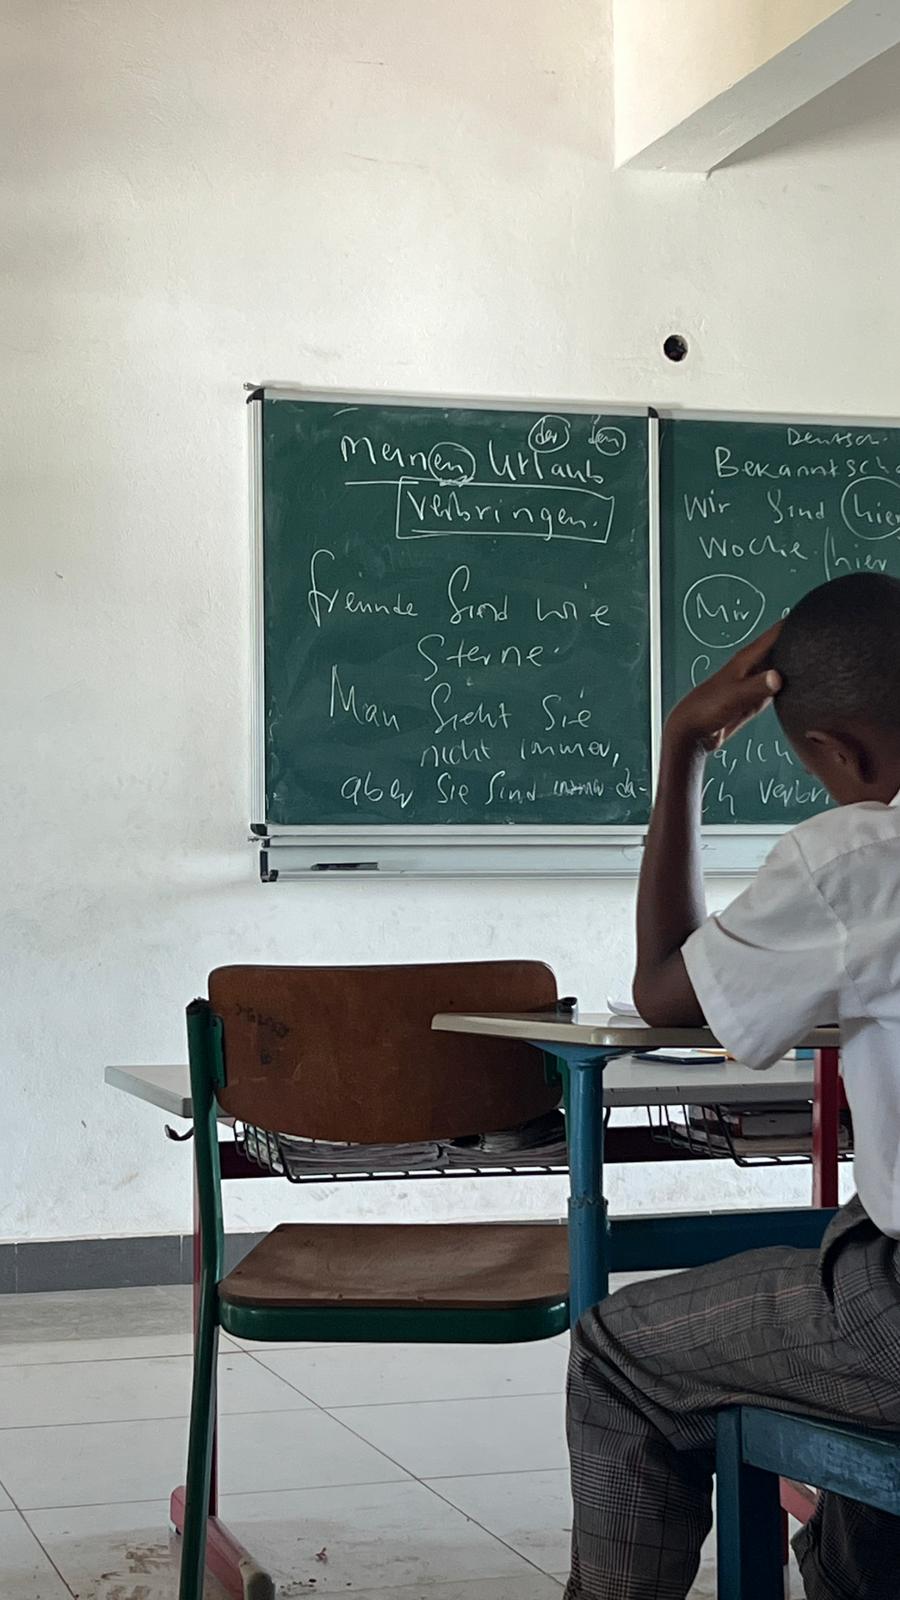 der den
meinen Urlaub
verbringen.
freunde Sind wie
Sterne.
Man Sieht Sie
nicht immer,
aber Sie Sind immer da-
Deutsch.
Bekanntscha
Wir Sind hier
Woche. hier
Mir
a, Ich
Ich Verbri